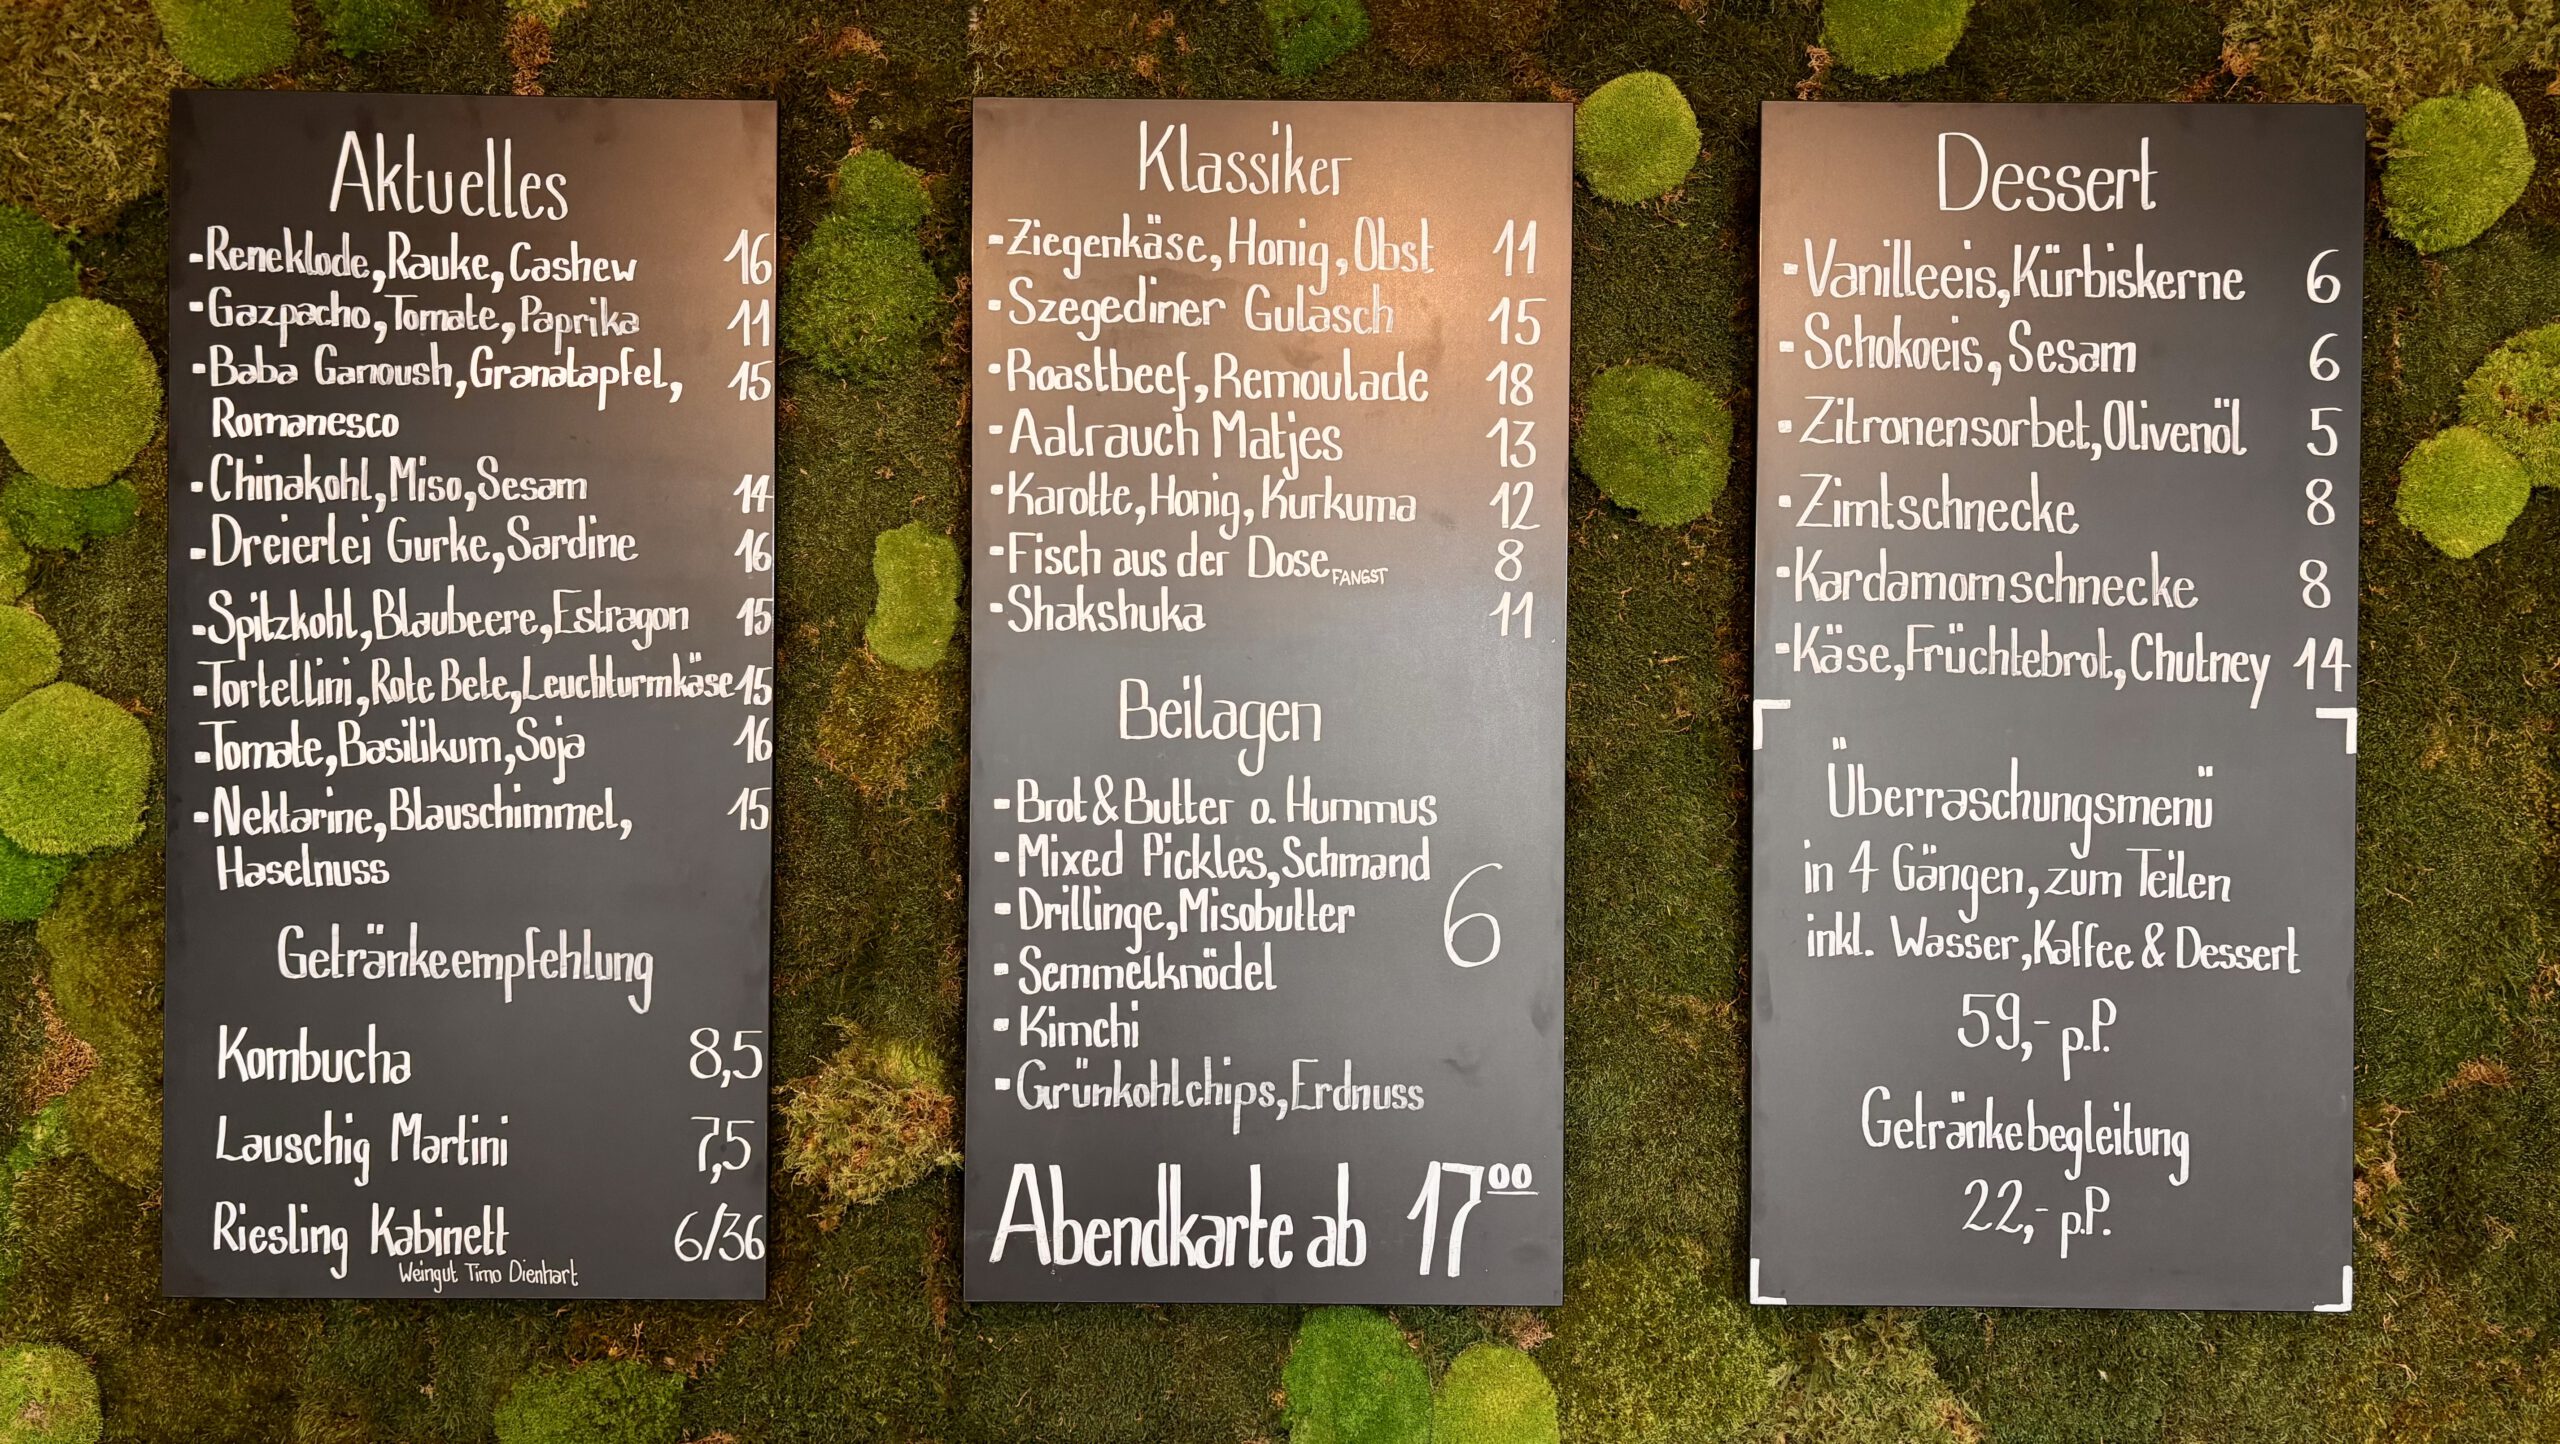 Aktuelles
-Reneklode, Rauke, Cashew 16
-Gazpacho, Tomate, Paprika 11
-Baba Ganoush, Granatapfel, 15
Romanesco
-Chinakohl, Miso, Sesam 14
-Dreierlei Gurke, Sardine 16
-Spitzkohl, Blaubeere, Estragon 15
-Tortellini, Rote Bete, Leuchturmkäse 15
-Tomate, Basilikum, Soja 16
-Nektarine, Blauschimmel, 15
Haselnuss
Getränkeempfehlung
Kombucha 8,5
Lauschig Martini 7,5
Riesling Kabinett 6/36
Weingut Timo Dienhart
Klassiker
-Ziegenkäse, Honig, Obst 11
-Szegediner Gulasch 15
-Roastbeef, Remoulade 18
-Aalrauch Matjes 13
-Karotte, Honig, Kurkuma 12
-Fisch aus der Dose FANGST 8
-Shakshuka 11
Beilagen
-Brot & Butter o. Hummus
-Mixed Pickles, Schmand
-Drillinge, Misobutter 6
-Semmelknödel
-Kimchi
-Grünkohlchips, Erdnuss
Abendkarte ab 17 00
Dessert
-Vanilleeis, Kürbiskerne 6
-Schokoeis, Sesam 6
-Zitronensorbet, Olivenöl 5
-Zimtschnecke 8
-Kardamomschnecke 8
-Käse, Früchtebrot, Chutney 14
Überraschungsmenü
in 4 Gängen, zum Teilen
inkl. Wasser, Kaffee & Dessert
59,- p.P.
Getränkebegleitung
22,- p.P.